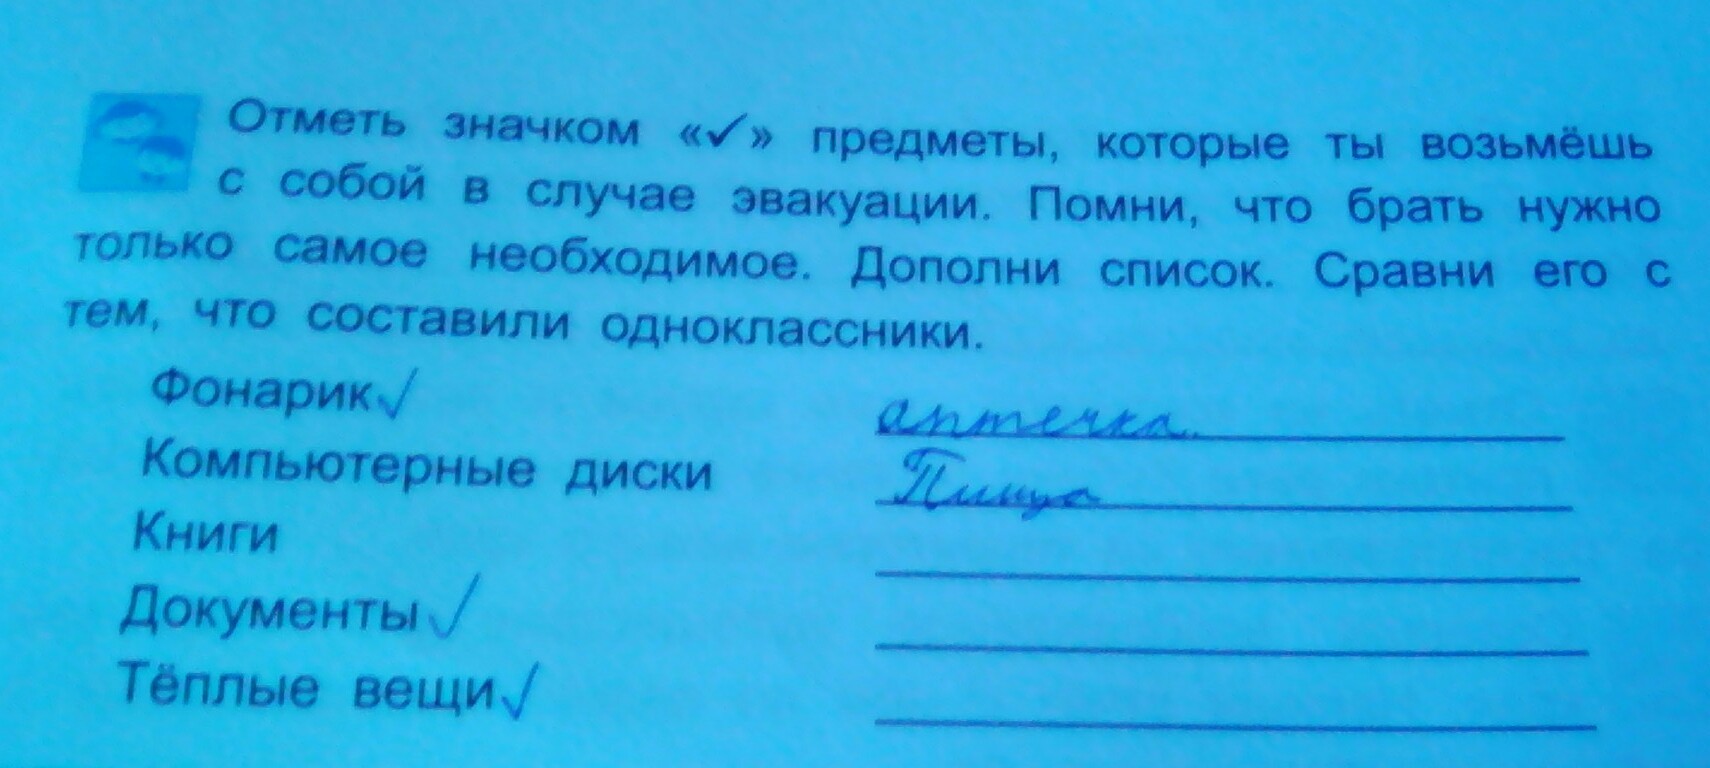 Отметь значком «✓» предметы, которые ты возьмёшь
с собой в случае эвакуации. Помни, что брать нужно
только самое необходимое. Дополни список. Сравни его с
тем, что составили одноклассники.
Фонарик✓
аптечка
Компьютерные диски
Пища
Книги
Документы✓
Тёплые вещи✓